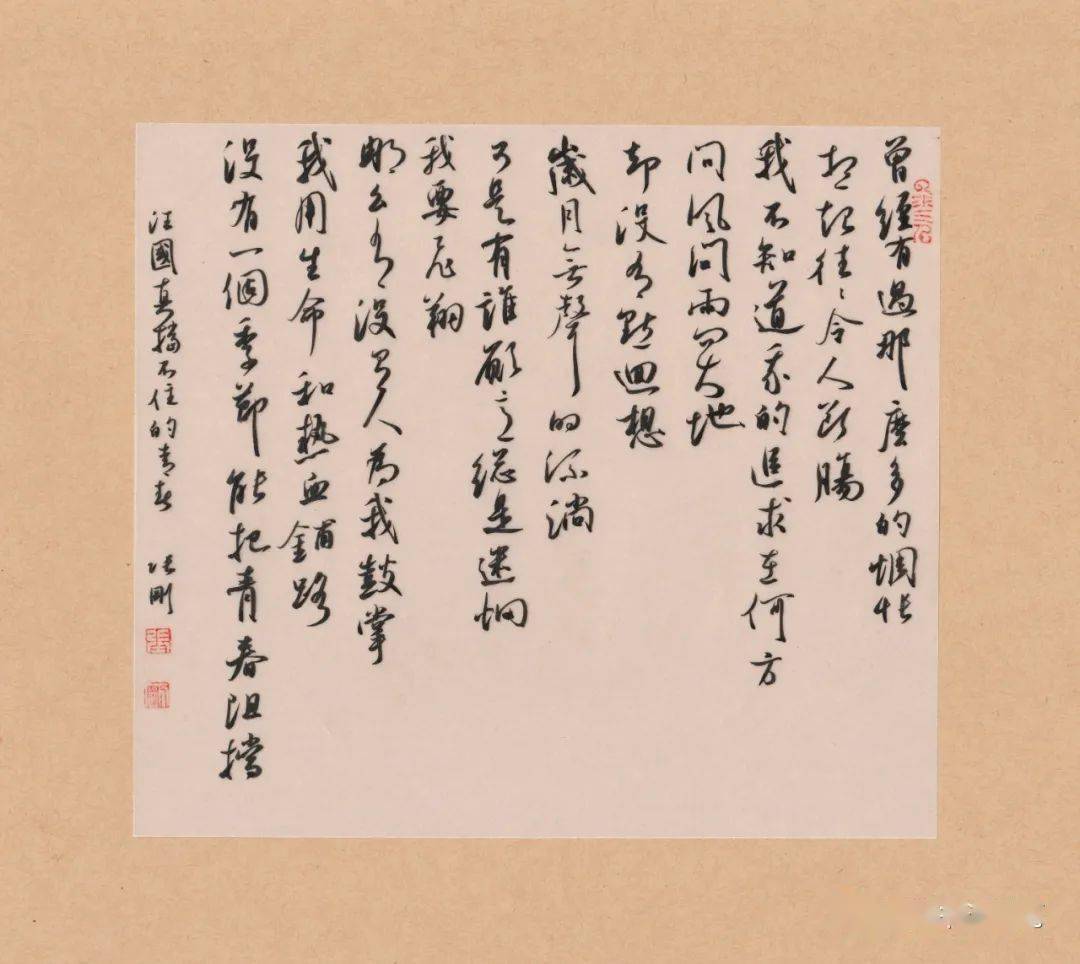 曾經有過那麼多的惆悵
想起往〻令人斷腸
我不知道我的追求在何方
問風問雨問天地
却沒有點迴想
歲月無聲的流淌
可是有誰願意總是迷惘
我要飛翔
哪管有沒有人為我鼓掌
我用生命和熱血鋪路
沒有一個季節能把青春阻擋
汪國真擋不住的青春 張剛